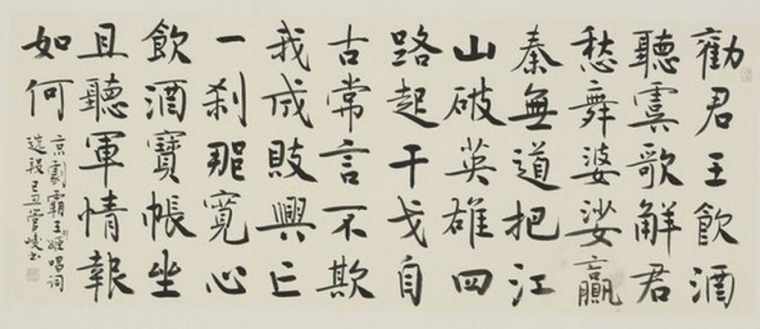 勸君王飲酒
聽虞歌解君
愁舞婆娑贏
秦無道把江
山破英雄四
路起干戈自
古常言不欺
我成敗興亡
一剎那寬心
飲酒寶帳坐
且聽軍情報
如何
京劇霸王別姬唱词
選段己丑管峻书